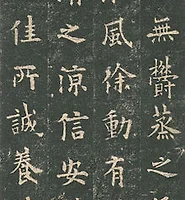 無鬱蒸之
風徐動有
之涼信安
佳所誠養